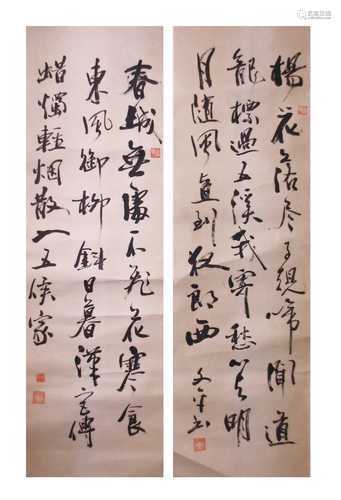 楊花落尽子規啼聞道
龍標過五溪我寄愁心与明
月随風直到夜郎西
春城無處不飛花寒食
東風御柳斜日暮漢宮傳
蜡燭輕烟散入五侯家